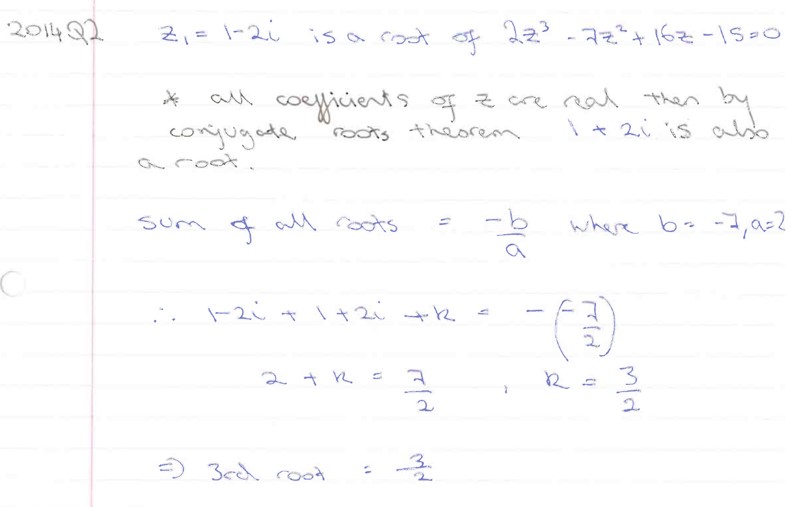 2014 Q2 z₁ = 1-2i is a root of 2z³ - 7z² + 16z - 15 = 0
* all coefficients of z are real then by
conjugate roots theorem 1 + 2i is also
a root.
sum of all roots = -b/a where b = -7, a=2
∴ 1-2i + 1+2i + k = -(-7/2)
2 + k = 7/2 , k = 3/2
⇒ 3rd root = 3/2